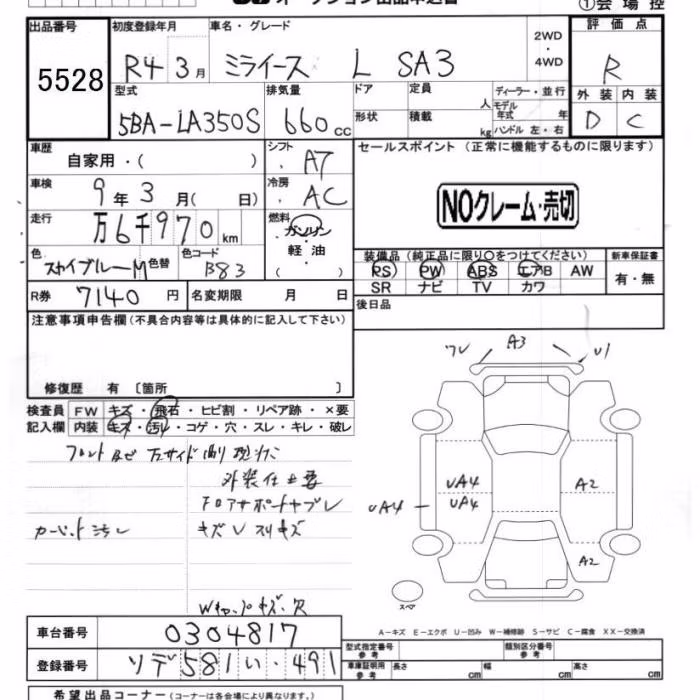 ①会場控
出品番号
5528
初度登録年月
R4 3月
車名・グレード
ミライース L SA3
2WD
・
4WD
評価点
R
型式
5BA-LA350S
排気量
660cc
ドア
形状
定員
人
積載
kg
ディーラー・並行
モデル
年式 年
ハンドル 左・右
外装 内装
D C
車歴
自家用・( )
シフト
AT
車検
9年3月( 日)
冷房
AC
走行
万6千970km
燃料
ガソリン
軽油
( )
色
スカイブルーM
色替
色コード
B83
R券 7140円
名変期限 月 日
セールスポイント (正常に機能するものに限ります)
NOクレーム・売切
装備品 (純正品に限り○をつけてください)
PS PW ABS エアB AW
SR ナビ TV カワ
新車保証書
有・無
後日品
注意事項申告欄(不具合内容等は具体的に記入して下さい)
修復歴 有 〔箇所 〕
検査員
記入欄
FW キズ・飛石・ヒビ割・リペア跡・×要
内装 キズ・汚レ・コゲ・穴・スレ・キレ・破レ
外装仕上要
カーペット汚レ
A3
UA4
UA4
UA4
A2
A2
スペア
A-キズ E-エクボ U-凹み W-補修跡 S-サビ C-腐食 XX-交換済
車台番号 0304817
登録番号 ソデ581い・491
型式指定番号
参考
類別区分番号
参考
車庫証明用
参考
長さ cm
幅 cm
高さ cm
希望出品コーナー(コーナーは各会場により異なります。)